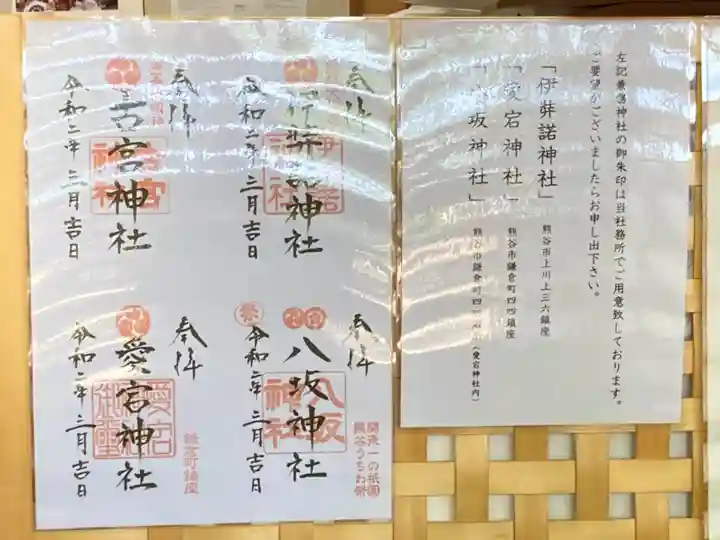 左記兼務神社の御朱印は当社務所でご用意致しております。
ご要望がございましたらお申し出下さい。
「伊弉諾神社」 熊谷市上川上三六鎮座
「愛宕神社」 熊谷市鎌倉町四四鎮座
坂神社」 熊谷市鎌倉町四四 (愛宕神社内)
奉拝
弉諾神社
伊弉諾神社
令和二年 三月吉日
奉拝
古宮神社
古宮神社
令和二年 三月吉日
奉拝
八坂神社
八坂神社
関東一の祇園
熊谷うちわ祭
令和二年 三月吉日
奉拝
愛宕神社
愛宕
鎌倉町鎮座
令和二年 三月吉日